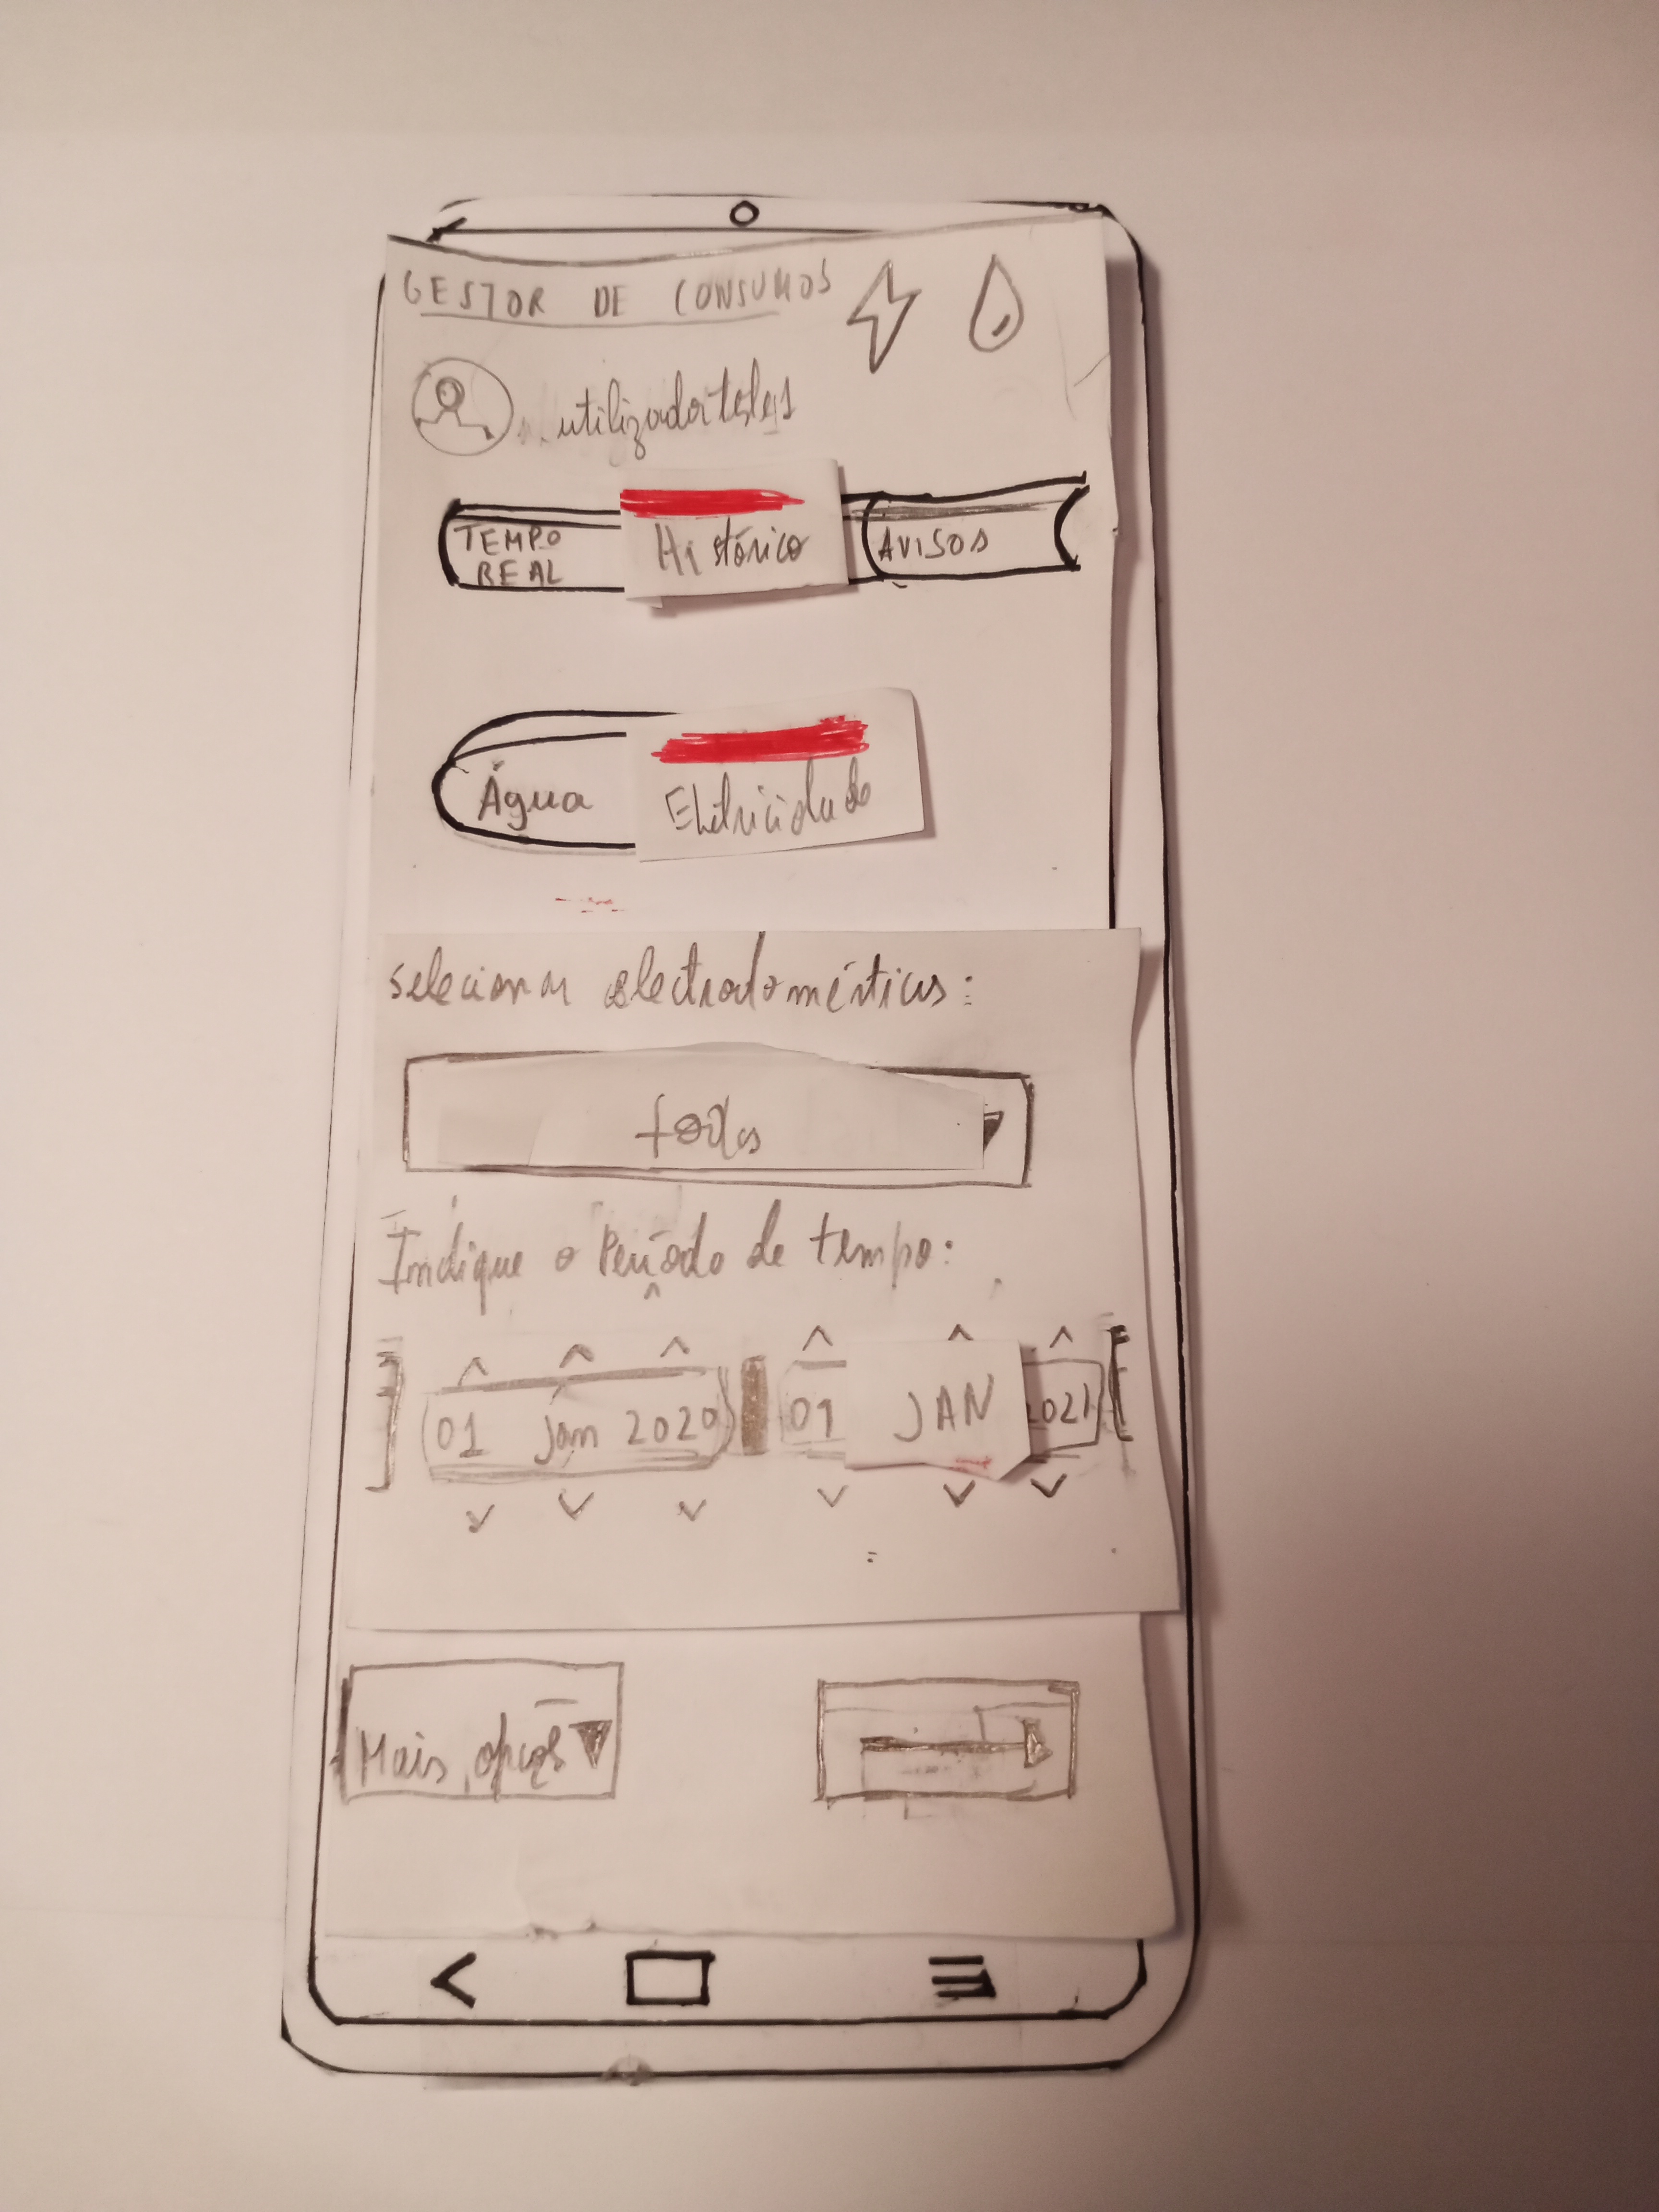 GESTOR DE CONSUMOS
utilizadorteste1
TEMPO REAL
Histórico
AVISOS
Água
Eletricidade
selecionar electrodomésticos:
todos
Indique o Período de tempo:
01 jan 2020 01 JAN 2021
Mais opções